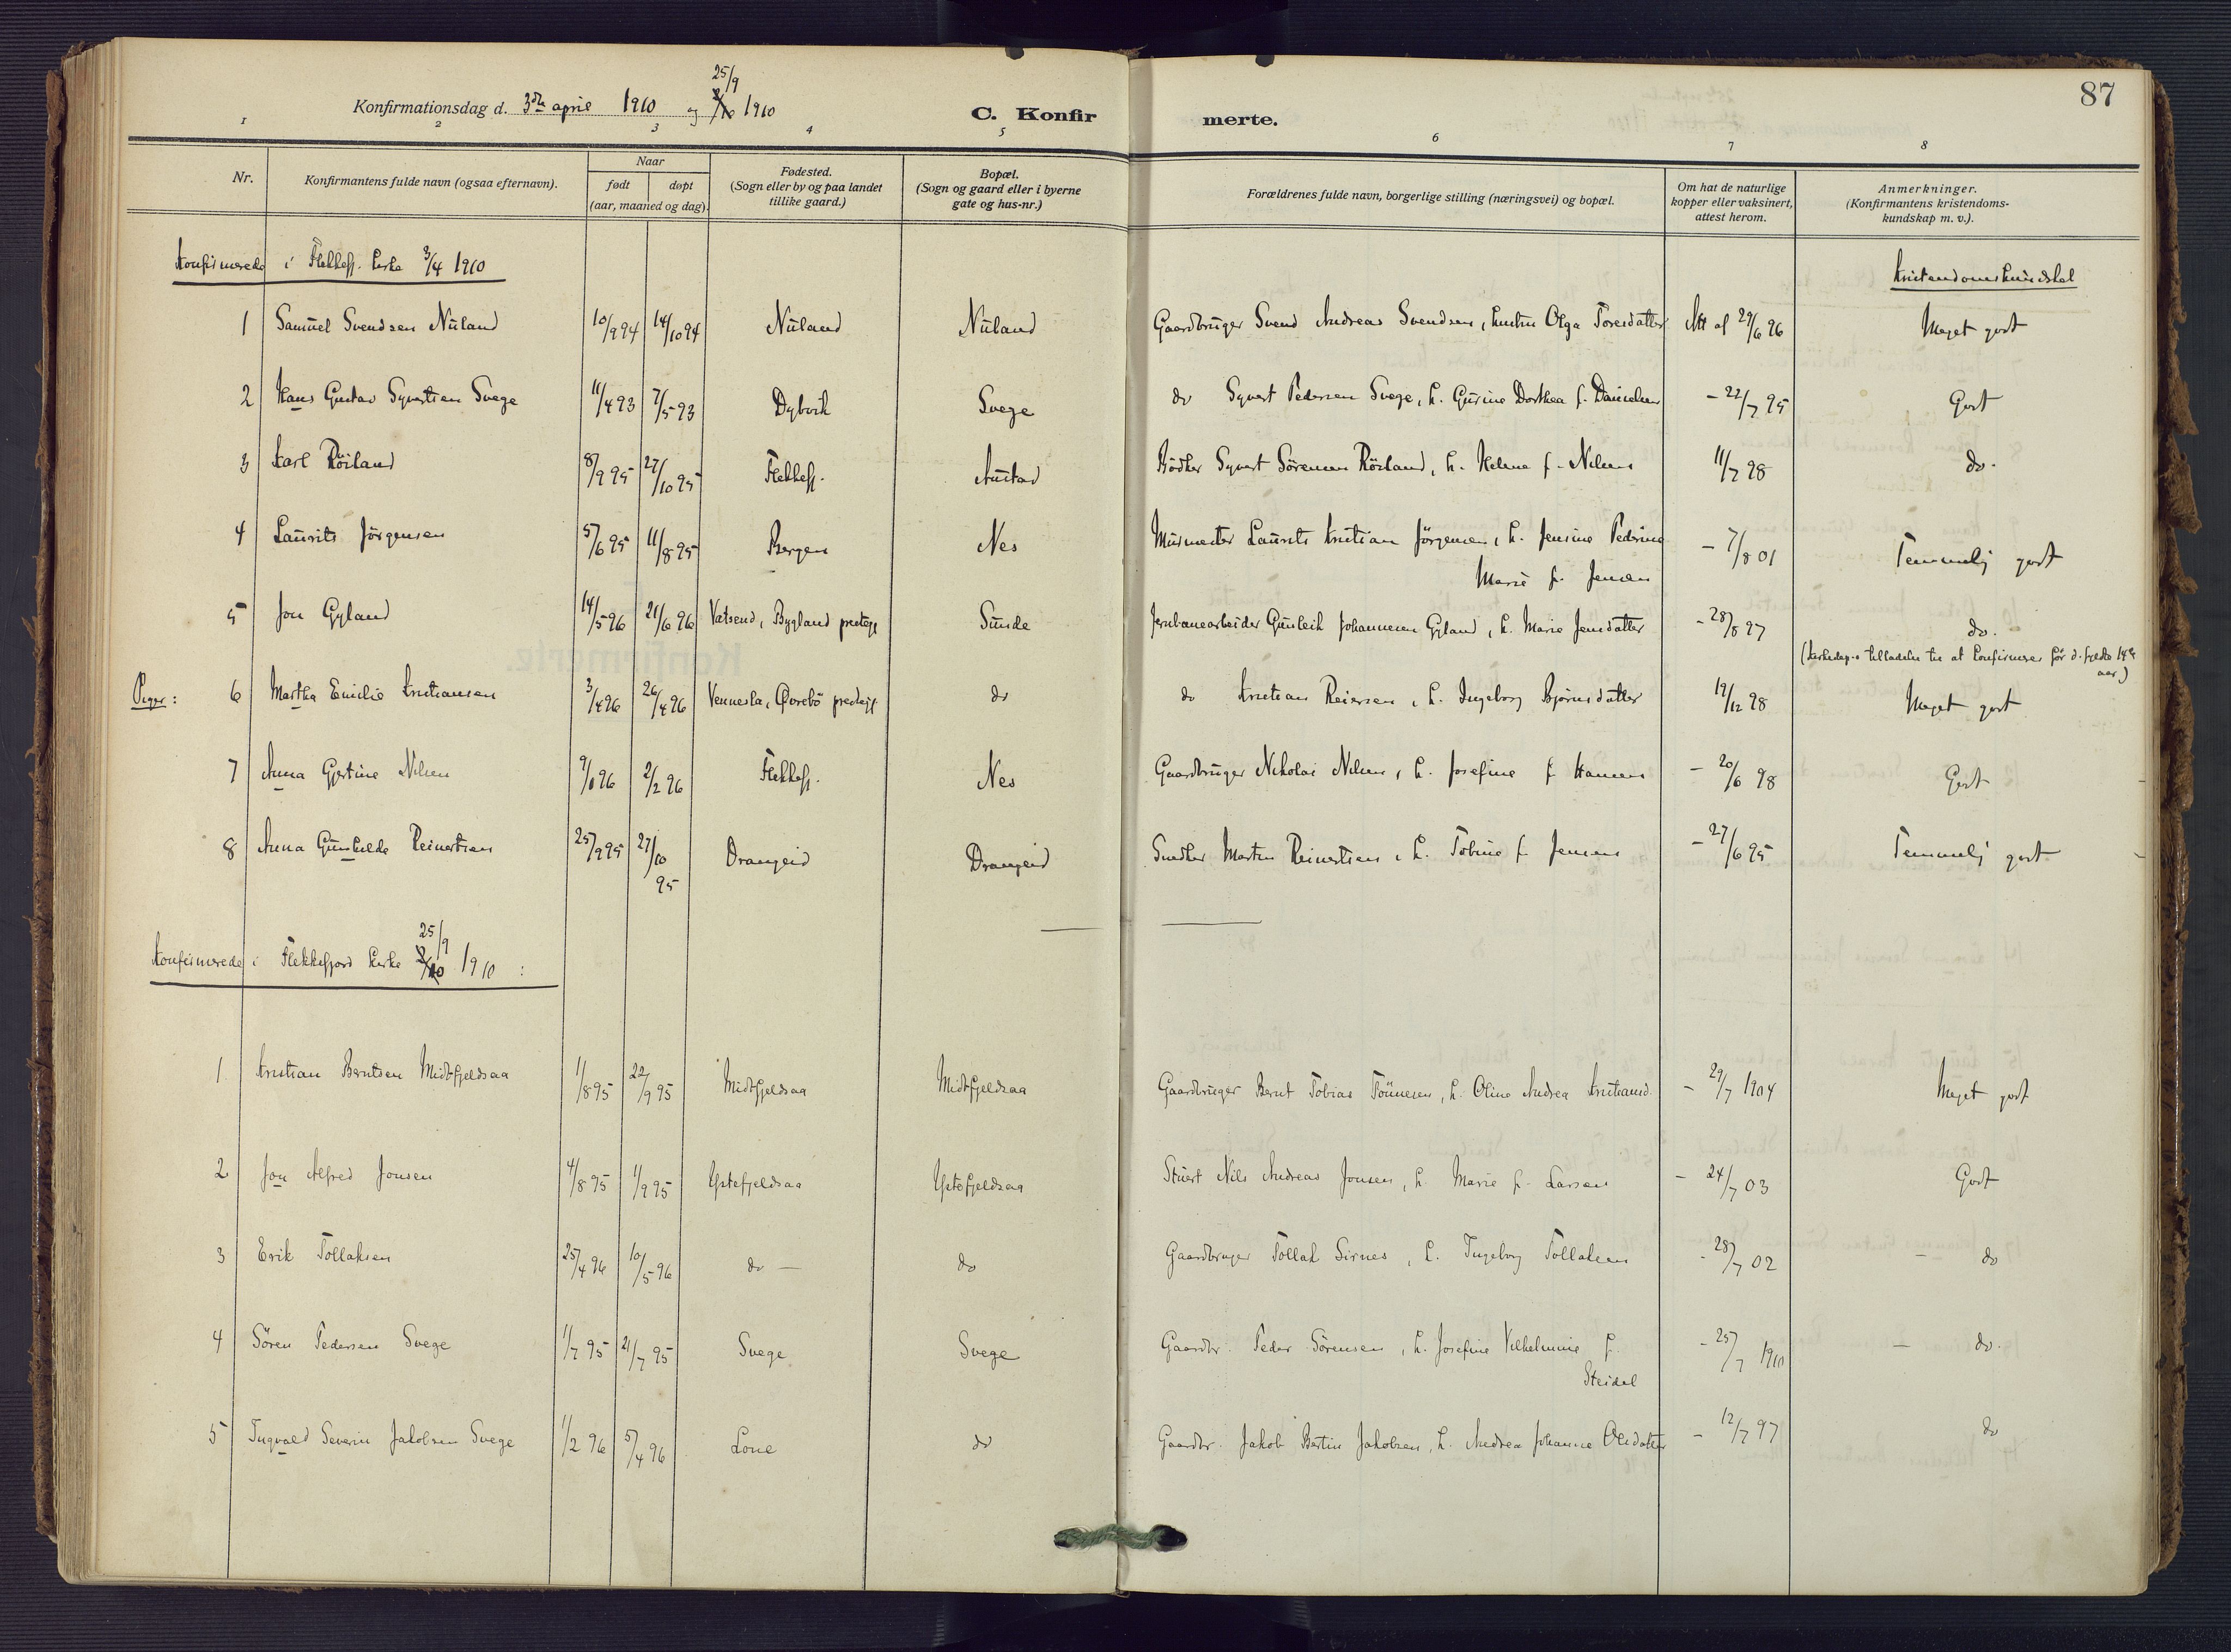 87
25/9
Konfirmationsdag d. 3die april 1910 og 2/10 1910
C. Konfir merte.
1 2 3 4 5 6 7 8
Nr. Konfirmantens fulde navn (ogsaa efternavn). Naar født døpt (aar, maaned og dag). Fødested. (Sogn eller by og paa landet tillike gaard.) Bopæl. (Sogn og gaard eller i byerne gate og hus-nr.) Forældrenes fulde navn, borgerlige stilling (næringsvei) og bopæl. Om hat de naturlige kopper eller vaksinert, attest herom. Anmerkninger. (Konfirmantens kristendoms-kundskap m. v.).
Konfirmerede i Flekkefj. kirke 3/4 1910
Kristendomskundskab
1 Samuel Svendsen Nuland 10/9 94 14/10 94 Nuland Nuland Gaardbruger Svend Andreas Svendsen, hustru Olga Toresdatter Att af 29/6 96 Meget godt
2 Hans Gustav Syvertsen Svege 11/4 93 7/5 93 Dybvik Svege do Syvert Pedersen Svege, h. Gurine Dorthea f. Danielsen - 22/7 95 Godt
3 Karl Röiland 8/9 95 27/10 95 Flekkefj. Austad Bödker Syvert Sörensen Röiland, h. Helene f. Nilsen 11/7 98 do.
4 Laurits Jörgensen 5/6 95 11/8 95 Bergen Nes Murmester Laurits Kristian Jörgensen, h. Jensine Pedrine
Marie f. Jensen - 7/8 01 Temmelig godt
5 Jon Gyland 14/5 96 21/6 96 Vatsend, Bygland prestegj. Sunde Jernbanearbeider Gunleik Johannesen Gyland, h. Marie Jensdatter - 28/8 97 do.
(Kirkedep.s tilladelse til at konfirmeres før d. fyldte 14de
aar)
Piger: 6 Martha Emilie Kristiansen 3/4 96 26/4 96 Vennesla, Øvrebö prestegj. do do Kristian Reiersen, h. Ingeborg Bjørnsdatter 19/12 98 Meget godt
7 Anna Gjertine Nilsen 9/1 96 2/2 96 Flekkefj. Nes Gaardbruger Nikolai Nilsen, h. Josefine f. Hansen - 20/6 98 Godt
8 Anna Gunhilde Reinertsen 25/9 95 27/10 95 Drangeid Drangeid Snedker Martin Reinertsen, h. Tobine f. Jensen - 27/6 95 Temmelig godt
25/9
Konfirmerede i Flekkefjord kirke 2/10 1910 :
1 Kristian Berntsen Midtfjeldsaa 1/8 95 22/9 95 Midtfjeldsaa Midtfjeldsaa Gaardbruger Bernt Tobias Tönnesen, h. Oline Andrea Kristiansd. - 29/7 1904 Meget godt
2 Jon Alfred Jonsen 4/8 95 1/9 95 Ystefjeldsaa Ystefjeldsaa Stuert Nils Andreas Jonsen, h. Marie f. Larsen - 24/7 03 Godt
3 Erik Tollaksen 25/4 96 10/5 96 do — do Gaardbruger Tollak Sirnes, h. Ingeborg Tollaksen - 28/7 02 — do
4 Sören Pedersen Svege 1/7 95 21/7 95 Svege Svege Gaardbr. Peder Sörensen, h. Josefine Vilhelmine f.
Steidel - 25/7 1910 — do.
5 Ingvald Severin Jakobsen Svege 1/2 96 5/4 96 Lone do Gaardbr. Jakob Bertin Jakobsen, h. Andrea Johanne Olsdatter - 12/7 97 do